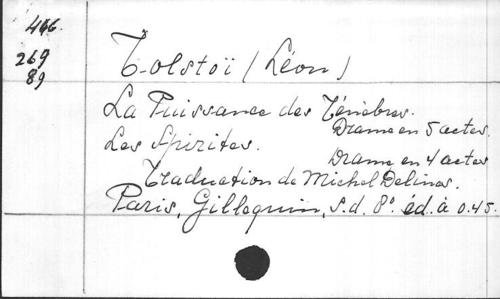 466.
269
89
Tolstoï (Léon)
La Puissance des Ténèbres.
Drame en 5 actes.
Les Spirites.
Drame en 4 actes
Traduction de Michel Delines.
Paris, Gillequin, s.d. 8º. éd. à 0.45.